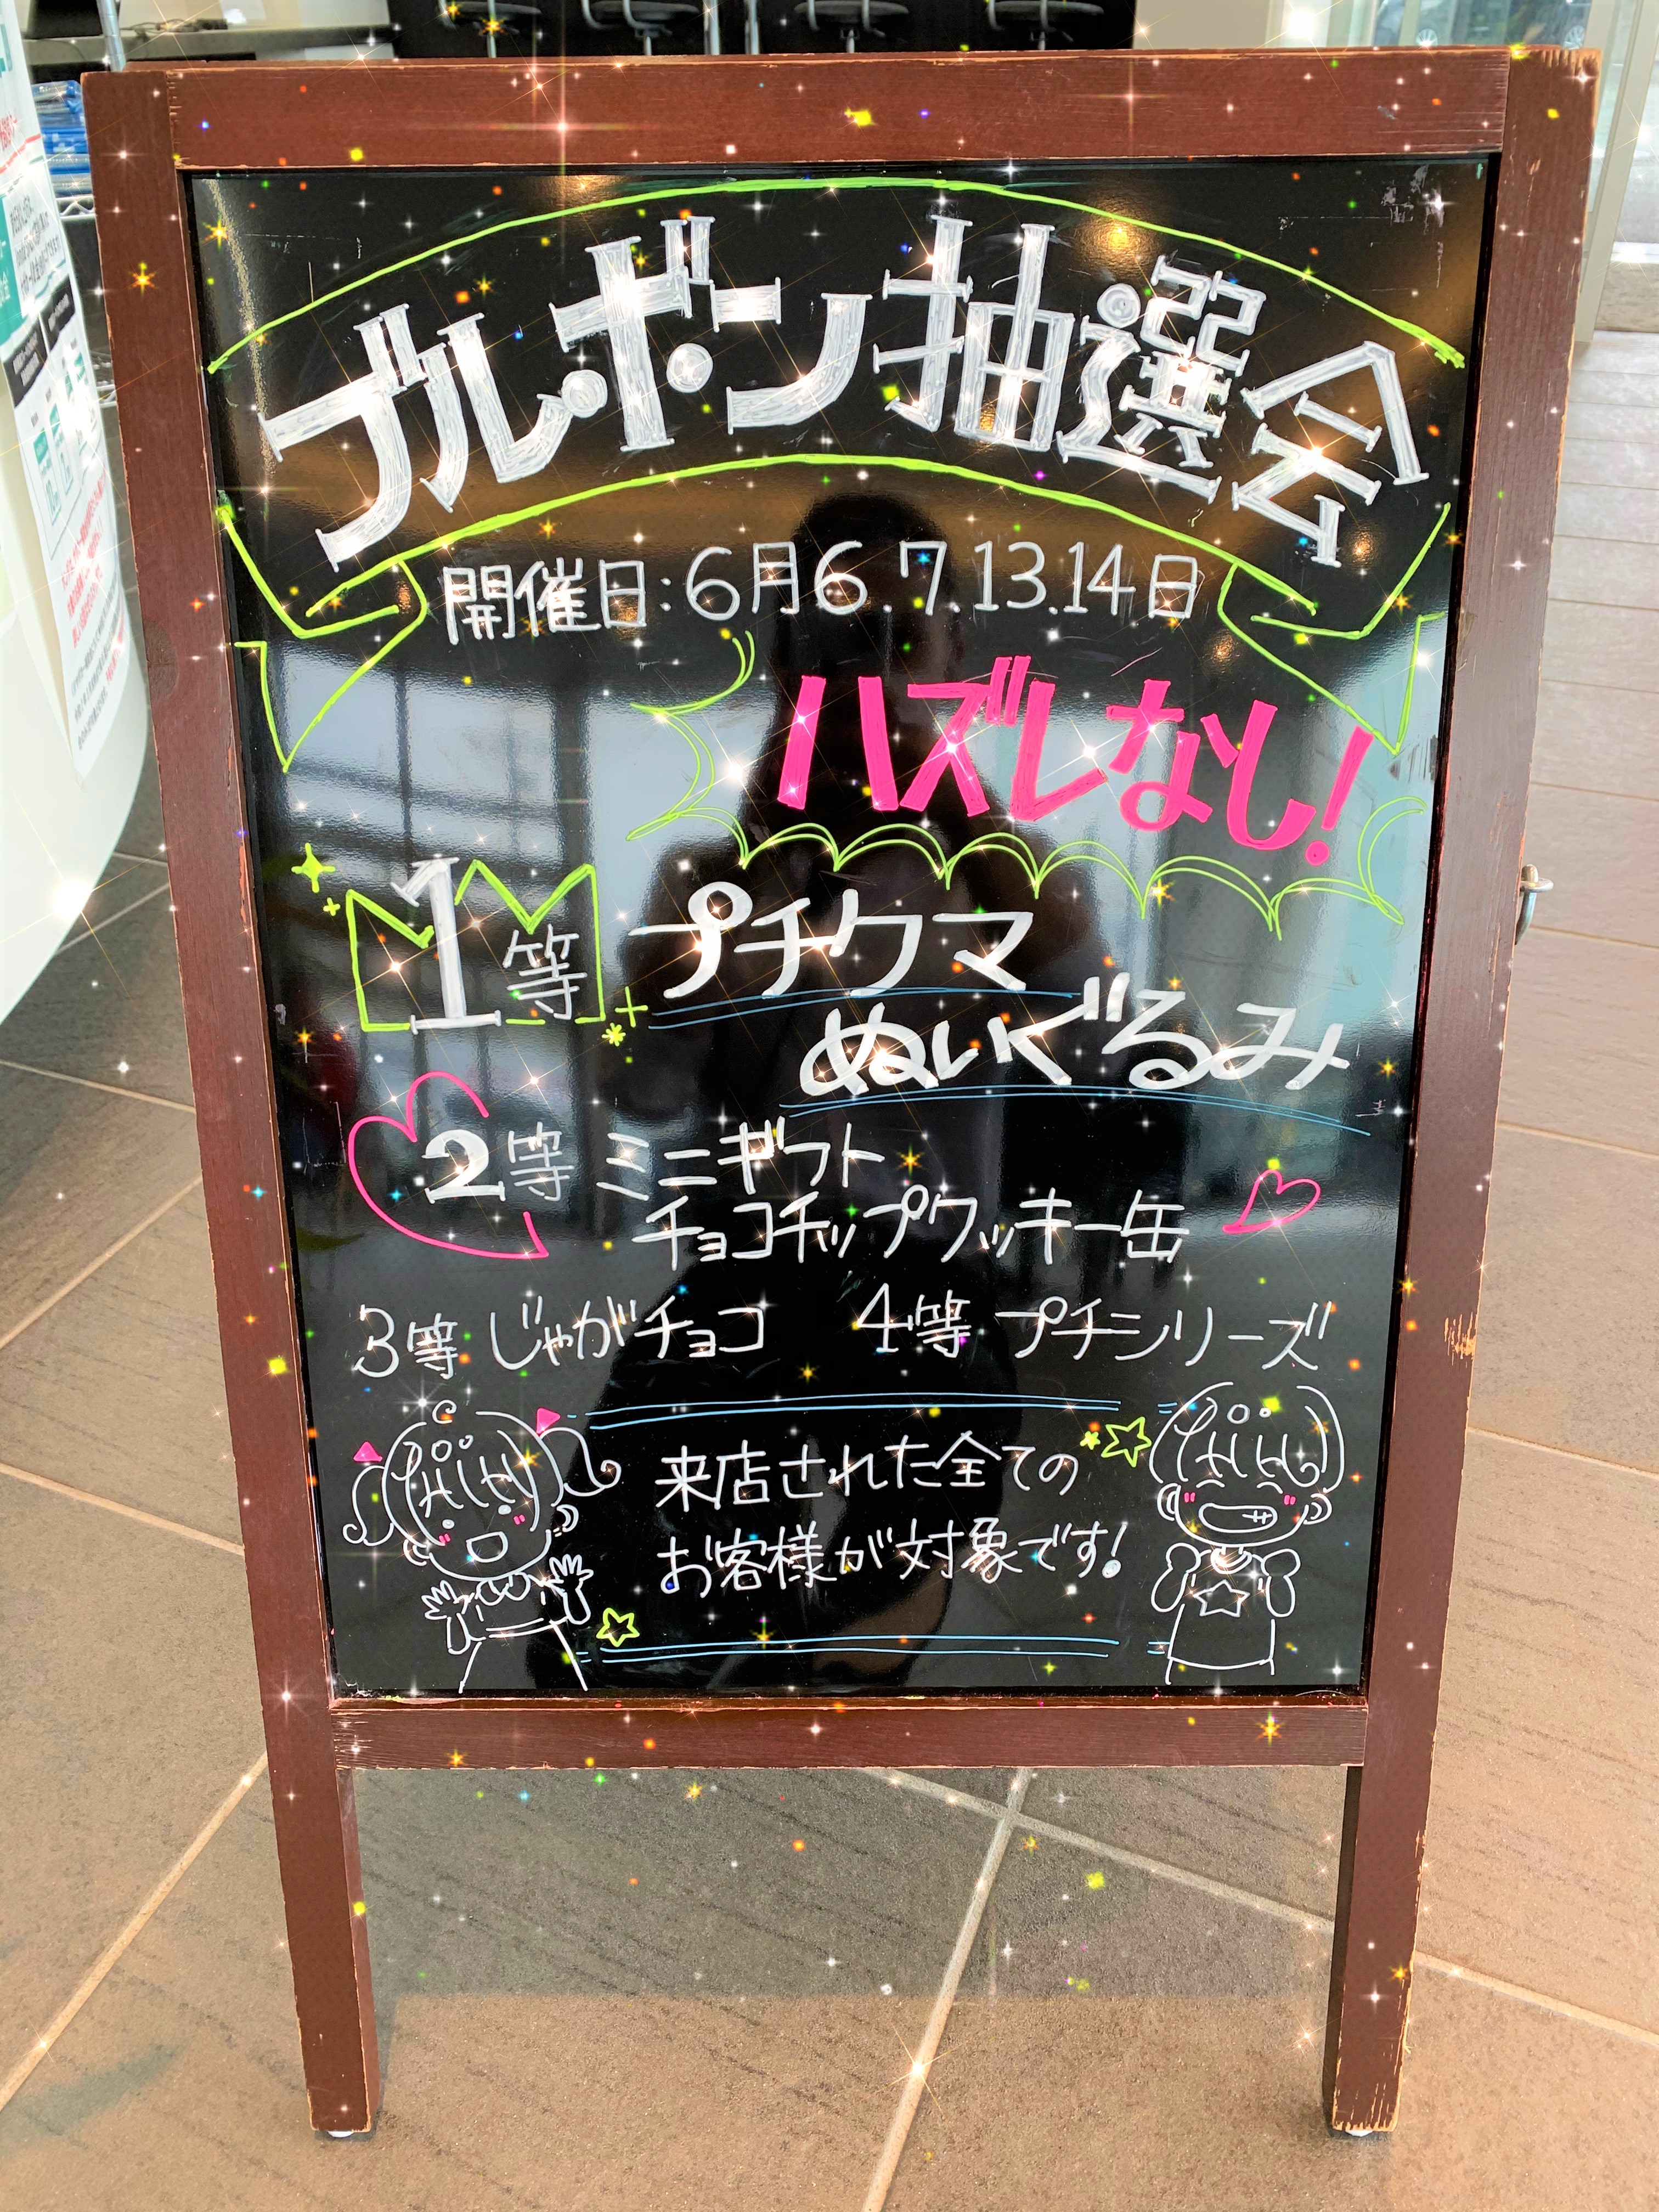 ブルボン抽選会
開催日:6月6.7.13.14日
ハズレなし!
1等 プチクマ
ぬいぐるみ
2等 ミニギフト
チョコチップクッキー缶
3等 じゃがチョコ 4等 プチシリーズ
来店された全ての
お客様が対象です!